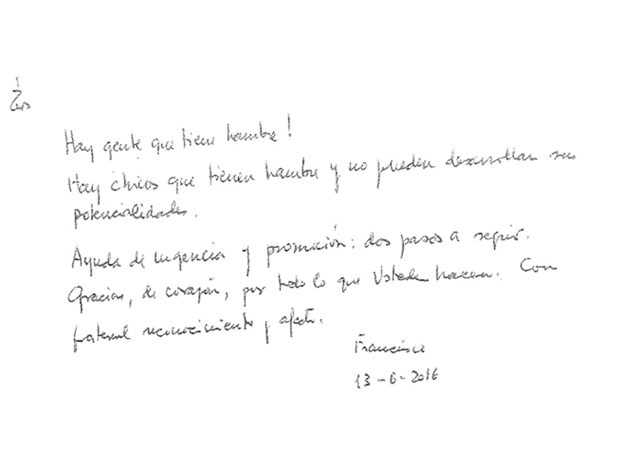 Hay gente que tiene hambre!
Hay chicos que tienen hambre y no pueden desarrollar sus
potencialidades.
Ayuda de urgencia y promoción: dos pasos a seguir.
Gracias, de corazón, por todo lo que Ustedes hacen. Con
fraternal reconocimiento y afecto,
Francisco
13-6-2016